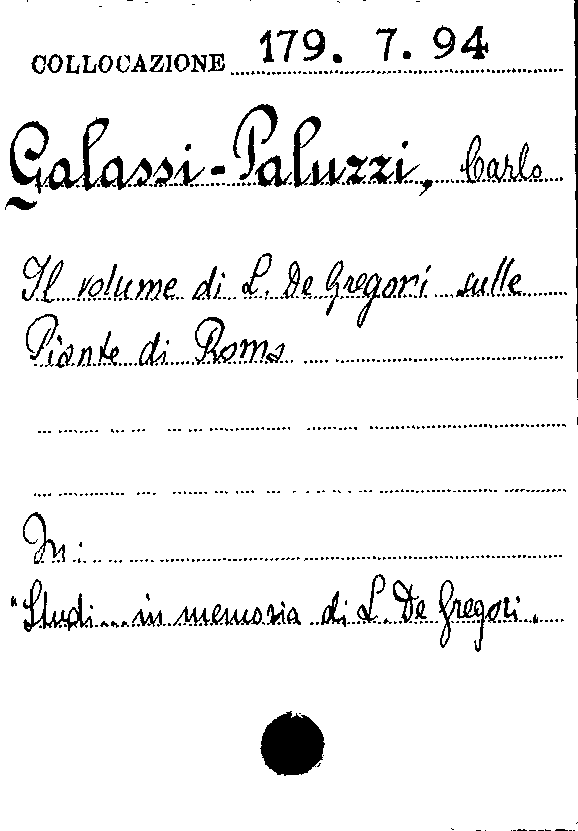 COLLOCAZIONE 179. 7. 94
Galassi-Paluzzi, Carlo
Il volume di L. De Gregori sulle
Piante di Roma
In:
"Studi... in memoria di L. De Gregori.